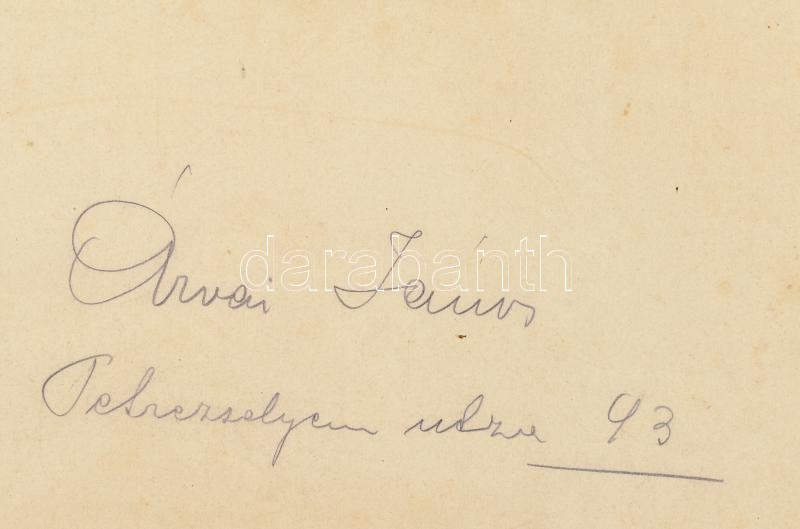 Árvai János
Petrezselyem utza 43
darabanth